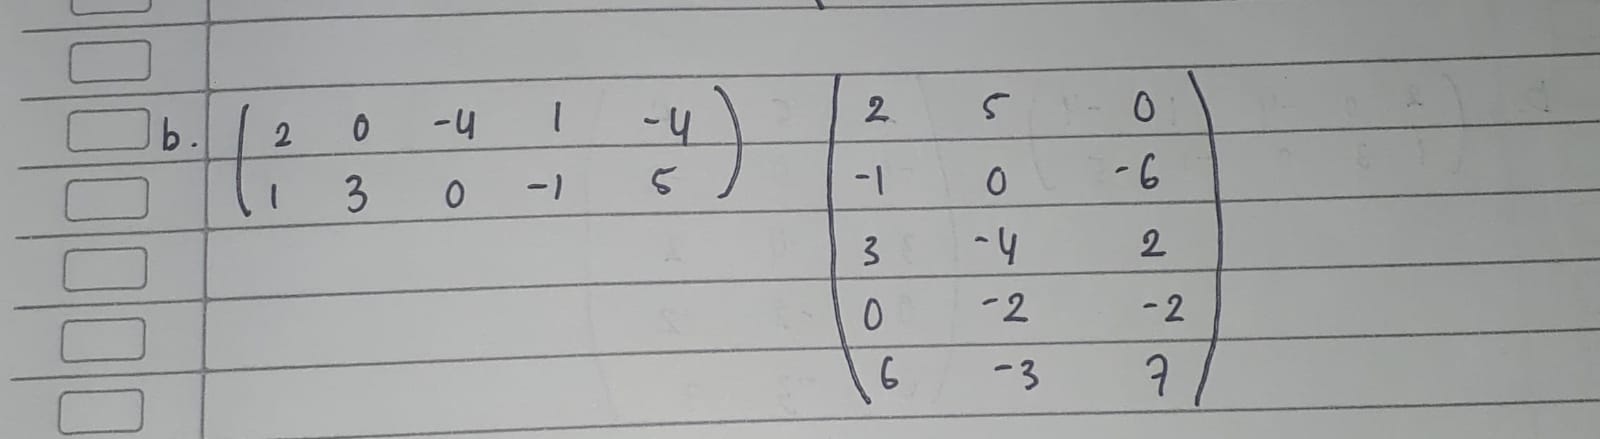 b. 2 0 -4 1 -4
1 3 0 -1 5
2 5 0
-1 0 -6
3 -4 2
0 -2 -2
6 -3 7